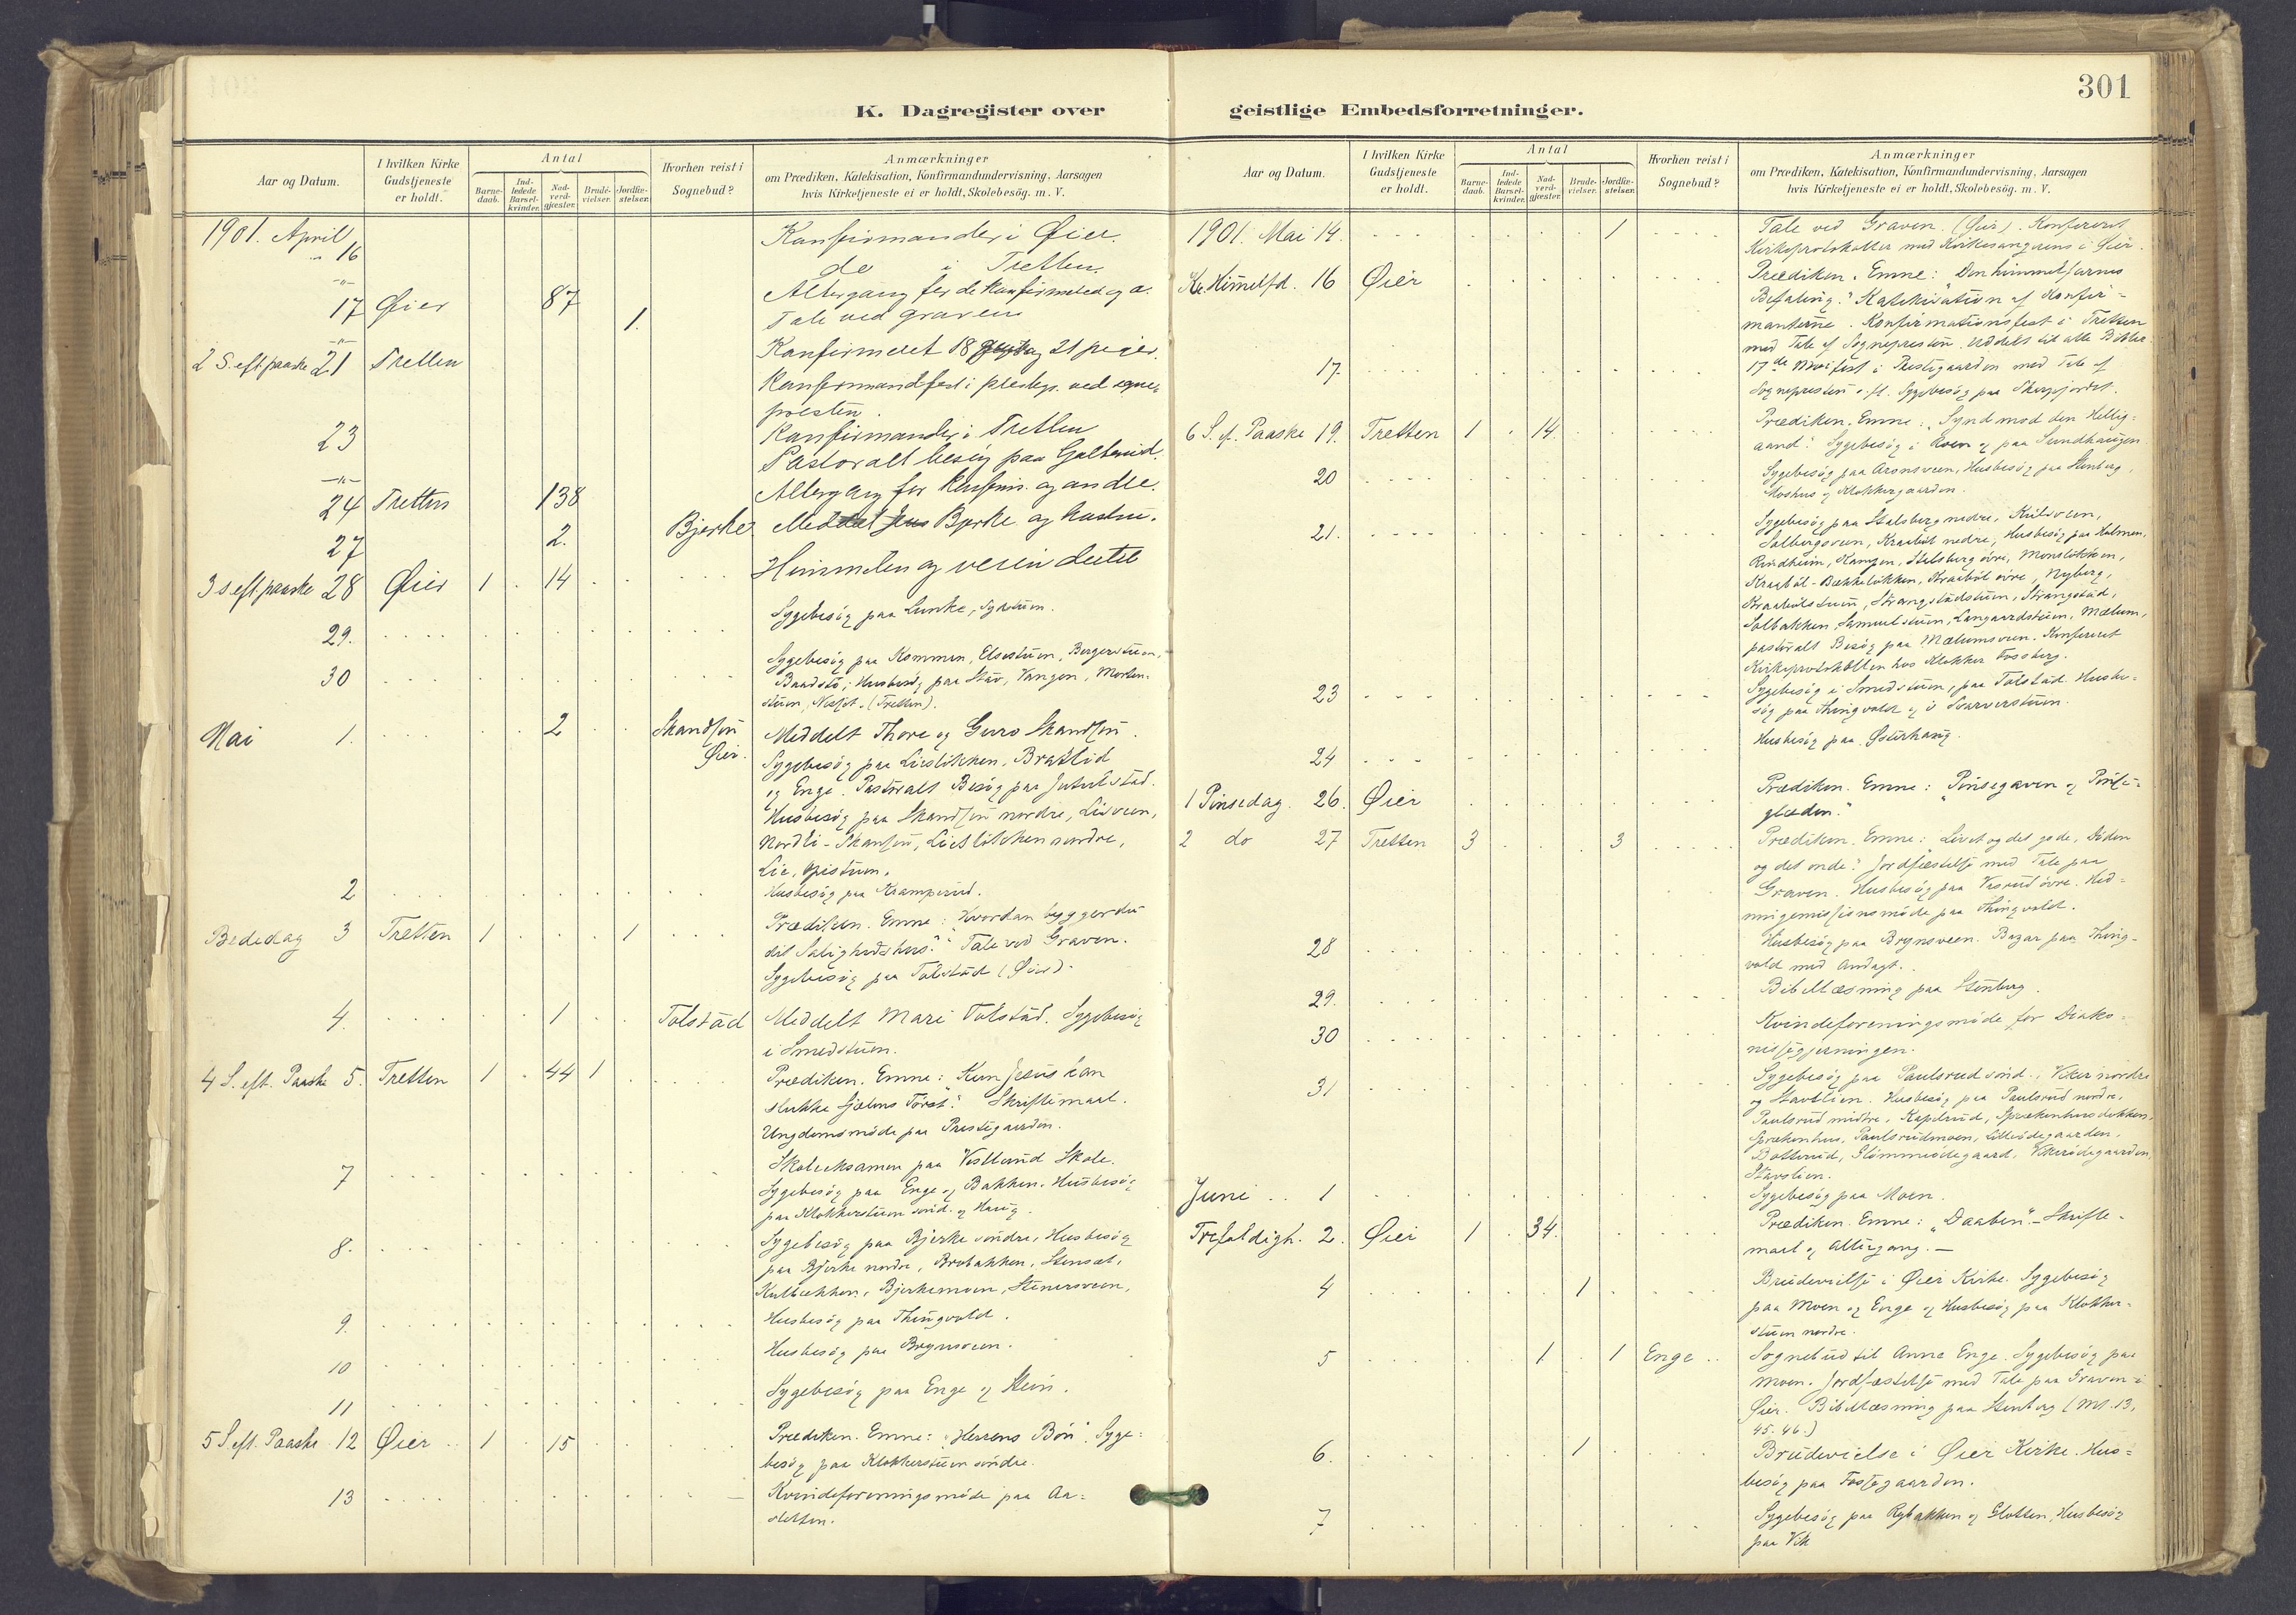 301
K. Dagregister over geistlige Embedsforretninger.
Aar og Datum.
I hvilken Kirke Gudstjeneste er holdt.
Antal
Barnedaab.
Indledede Barselkvinder.
Nadverdgjæster.
Brudevielser.
Jordfæstelser.
Hvorhen reist i Sognebud?
Anmærkninger
om Prædiken, Katekisation, Konfirmandundervisning, Aarsagen
hvis Kirketjeneste ei er holdt, Skolebesög. m. V.
1901. April 16 Konfirmander i Øier.
do i Tretten.
17 Øier 87 Altergang for de konfirmerede og a.
1. Tale ved graven
2 S. eft. paaske 21 Tretten Konfirmeret 18 og 21 piger.
Konfirmandfest i prestegr. ved sogne-
presten.
23 Konfirmander i Tretten
Pastoralt besøg paa
24 Tretten 138 Altergang for konfirm. og andre.
27 2. Bjerke Bjerke og hustru.
3 s eft. paaske 28 Øier 1 14 Himmelen og veien dertil
29. Sygebesög paa Lunke,
30 Sygebesög paa Kommen, Elsestuen, Borgerstuen,
Husbesög paa Stav, Vangen, Morten-
stuen, (Tretten).
Mai 1. 2 Skandsen Øier. Meddelt Thore og Guro Skandsen.
Sygebesög paa Lieslökken, Bratlid
og Enge. Pastoralt Besög paa Jutulstad.
Husbesög paa Skandsen nordre, Lisveen,
Nordli-Skansen, Lieslökken nordre,
Lie, Opistuen.
2 Husbesög paa Kramperud.
Bededag 3 Tretten 1 1 Prædiken. Emne: Hvordan bygger du
dit Salighedshus?" Tale ved Graven.
Sygebesög paa Tolstad (Øier).
4. 1 Tolstad Meddelt Mari Tolstad. Sygebesög
i Smedstuen.
4 S. eft. Paaske 5. Tretten 1 44 1 Prædiken. Emne: "Kun Jesus kan
slukke Sjælens Törst." Skriftemaal.
Ungdomsmöde paa Prestegaarden.
7 Skoleeksamen paa Vestlund Skole.
Sygebesög paa Enge og Bakken. Husbesög
paa Klokkerstuen sönd. og Haug.
8. Sygebesög paa Bjerke söndre, Husbesög
paa Bjerke nordre, Brobakken, Stensæt,
Kulbækken, Bjerkemoen, Stenersveen,
9. Husbesög paa Thingvold.
10 Husbesög paa Brynsveen.
11 Sygebesög paa Enge og Stein.
5 S. eft. Paaske 12 Øier 1 15 Prædiken. Emne: "Herrens Bön". Syge-
besög paa Klokkerstuen söndre.
13 Kvindeforeningsmöde paa Aa-
sletten.
Aar og Datum.
I hvilken Kirke Gudstjeneste er holdt.
Antal
Barnedaab.
Indledede Barselkvinder.
Nadverdgjæster.
Brudevielser.
Jordfæstelser.
Hvorhen reist i Sognebud?
Anmærkninger
om Prædiken, Katekisation, Konfirmandundervisning, Aarsagen
hvis Kirketjeneste ei er holdt, Skolebesög. m. V.
1901. Mai 14. 1 Tale ved Graven. (Øier). Konfereret
Kirkeprotokoller med Kirkesangeren i Øier.
Kr. Himelfd. 16 Øier Prædiken. Emne: Den himmelfarnes
Befaling." Katekisation af Konfir-
manterne. Konfirmationsfest i Tretten
med Tale af Sognepresten. Uddelt til alle Bibler.
17. 17de Maifest i Prestegaarden med Tale af
Sognepresten o. fl. Sygebesög paa Skarpsjordet.
6 S. ef. Paaske 19. Tretten 1 14. Prædiken. Emne: "Synd mod den Hellig-
aand." Sygebesög i Roen og paa Sundhaugen.
20 Sygebesög paa Aronsveen, Husbesög paa Stenberg,
Moshus og Klokkergaarden.
21. Sygebesög paa Stalsberg nedre,
Solbergsveen, Kraaböl nedre, Husbesög paa Holmen,
Rindheim, Kampen, Stalsberg övre, Monslökken,
Kraaböl-Bækkelökken, Kraaböl övre, Nyberg,
Kraabölstuen, Strangstadstuen, Strangstad,
Solbakken, Samuelstuen, Langaardstuen, Mælum,
pastoralt Besög paa Mælumsveen. Konfereret
Kirkeprotokollen hos Klokker Fossberg.
23 Sygebesög i Smedstuen, paa Tolstad. Husbe-
sög paa Thingvold og i Svarverstuen.
24 Husbesög paa Østerhaug.
1 Pinsedag. 26. Øier Prædiken. Emne: "Pinsegaven og Pinse-
glæden."
2 do 27 Tretten 3 3 Prædiken. Emne: Livet og det gode, Döden
og det onde." Jordfæstelse med Tale paa
Graven. Husbesög paa Vasrud övre. Hed-
ningemissionsmöde paa Thingvold.
28 Husbesög paa Brynsveen. Bazar paa Thing-
vold med Andagt.
29. Bibellæsning paa Stenberg.
30 Kvindeforeningsmöde for Diako-
nissegjerningen.
31 Sygebesög paa Paulsrud sönd., Veker nordre
og Stavslien. Husbesög paa Paulsrud nordre,
Paulsrud midtre, Kapelrud, Sprækenhuslökken,
Sprækenhus, Paulsrudmoen, Lilleödegaarden,
Botterud, Glömmeödegaard, Vekerödegaarden,
Stavslien.
Juni 1 Sygebesög paa Moen.
Trefoldigh. 2. Øier 1 34. Prædiken. Emne: "Daaben". - Skrifte-
maal og Altergang. —
4 1 Brudevielse i Øier Kirke. Sygebesög
paa Moen og Enge og Husbesög paa Klokker-
stuen nordre.
5 1 1 Enge Sognebud til Anne Enge. Sygebesög paa
Moen. Jordfæstelse med Tale paa Graven i
Øier. Bibellæsning paa Stenberg (Mt. 13,
45-46.)
6. 1 Brudevielse i Øier Kirke. Hus-
besög paa Fossegaarden.
7 Sygebesög paa Rybakken og Slotten, Husbesög
paa Vik